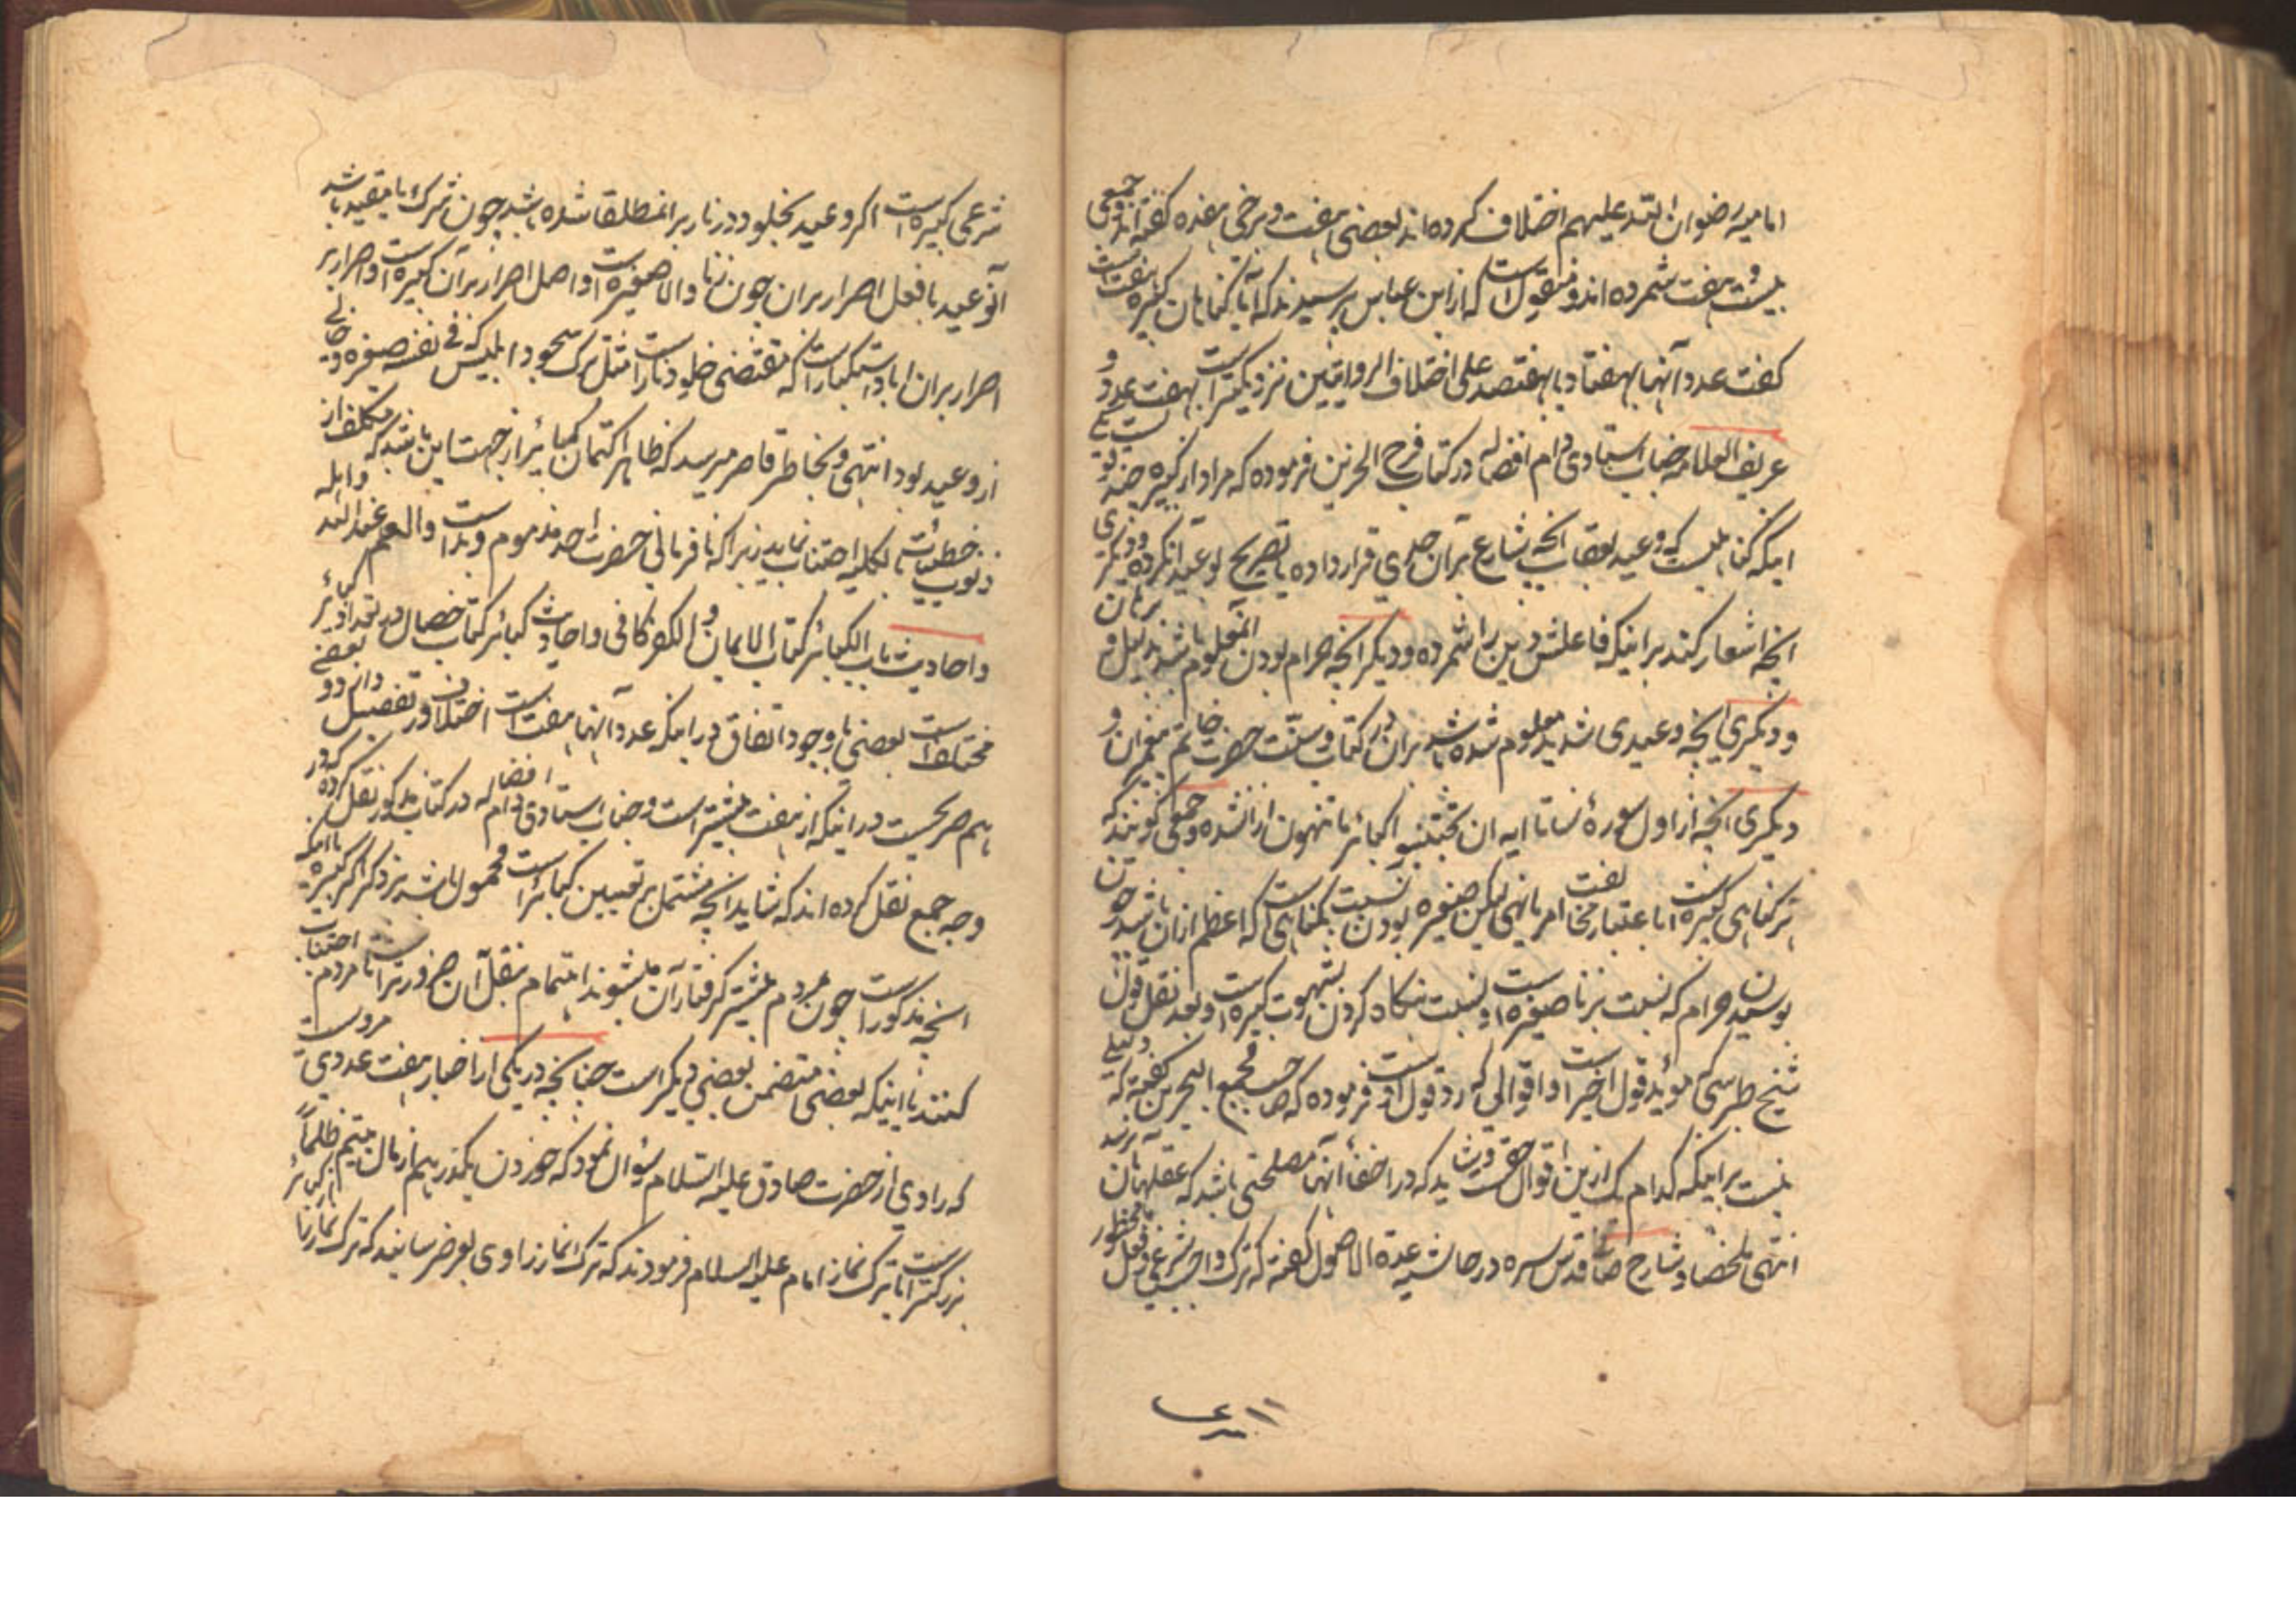 امامیه رضوان الله علیهم اختلاف کرده اند بعضی هفت و برخی هفده کفته اند و جمعی
بیست و هفت شمرده اند و منقول است که از ابن عباس پرسیدند که آیا کناهان کبیره هفت است
کفت عدد آنها بهفتاد یا بهفتصد علی اختلاف الروایتین نزدیکتر است بهفت عدد و
عریف العلامه جناب استادی دام افضاله در کتاب فرح الحزین فرموده که مراد از کبیره
اینکه کناهیست که وعید بعقاب انچه شارع بر آن حدی قرار داده یا تصریح بوعید آن کرده و دیکری
انچه اشعار کند بر اینکه فاعلش دین را شمرده و دیکر انچه حرام بودن آن معلوم باشد بدلیل و برهان
و دیکری انچه وعیدی شدید معلوم شده باشد بر آن در کتاب و سنت حضرت خاتم پیغمبران و
دیکری انچه از اول سوره نسا تا ایه ان تجتنبوا کبائر ما تنهون از آن نهی شده و جمعی کویند که
هر کناهی کبیره است باعتبار مخالفت امر یا نهی لیکن صغیره بودن نسبت بکناهی است که اعظم از آن باشد چون
بوسیدن حرام که نسبت بزنا صغیره است و نسبت بنکاه کردن بشهوت کبیره است و بعد نقل قول
شیخ طبرسی که مؤید قول اخیر است و اقوالی که رد قول اوست فرموده که صاحب مجمع البحرین کفته که دلیلی
نیست بر اینکه کدام یک ازین اقوال حق است و شاید که در اخفاء آنها مصلحتی باشد که عقلها بآن نرسد
انتهی ملخصا و شارح صافی قدس سره در حاشیه عدة الاصول کفته که ترک واجب شرعی و فعل محظور
شرعی کبیره است اکر وعید بخلود در نار بر ان مطلقا شده باشد چون شرک یا مقید باشد
آن وعید با فعل اصرار بر ان چون زنا والا صغیره است و اصل اصرار بر آن کبیره است و اصرار بر
اصرار بر ان اباء و استکبار است که مقتضی خلود نار است مثل ترک سجود ابلیس که فی نفسه صغیره
از وعید بود انتهی و بخاطر قاصر میرسد که ظاهرا کتمان کبائر از جهت این باشد که مکلف از
ذنوب و خطیئات بالکلیه اجتناب نماید زیرا که نافرمانی حضرت احد مذموم و بد است والعلم عند الله و اهله
و احادیث باب الکبائر کتاب الایمان و الکفر کافی و احادیث کبائر کتاب خصال در تعداد کبائر
مختلف است بعضی با وجود اتفاق در اینکه عدد آنها هفت است اختلاف در تفصیل دارند و بعضی
هم صریحست در اینکه از هفت بیشتر است و جناب استادی دام افضاله در کتاب مذکور نقل کرده
وجه جمع نقل کرده اند که شاید انچه مشتمل بر تعیین کبائر است محمول باشد بر ذکر اکبر کبیره یا اینکه
انچه مذکور است چون مردم بیشتر کرفتار آن میشوند اهتمام بنقل آن ضرورتر است تا مردم اجتناب
کنند یا اینکه بعضی متضمن بعضی دیکر است چنانچه در یکی از اخبار هفت عددی مرویست
که راوی از حضرت صادق علیه السلام سؤال نمود که خوردن یکدرهم از مال یتیم ظلماً
بزرکتر است یا ترک نماز امام علیه السلام فرمودند که ترک نماز راوی بعرض رسانید که ترک نماز را از کبائر